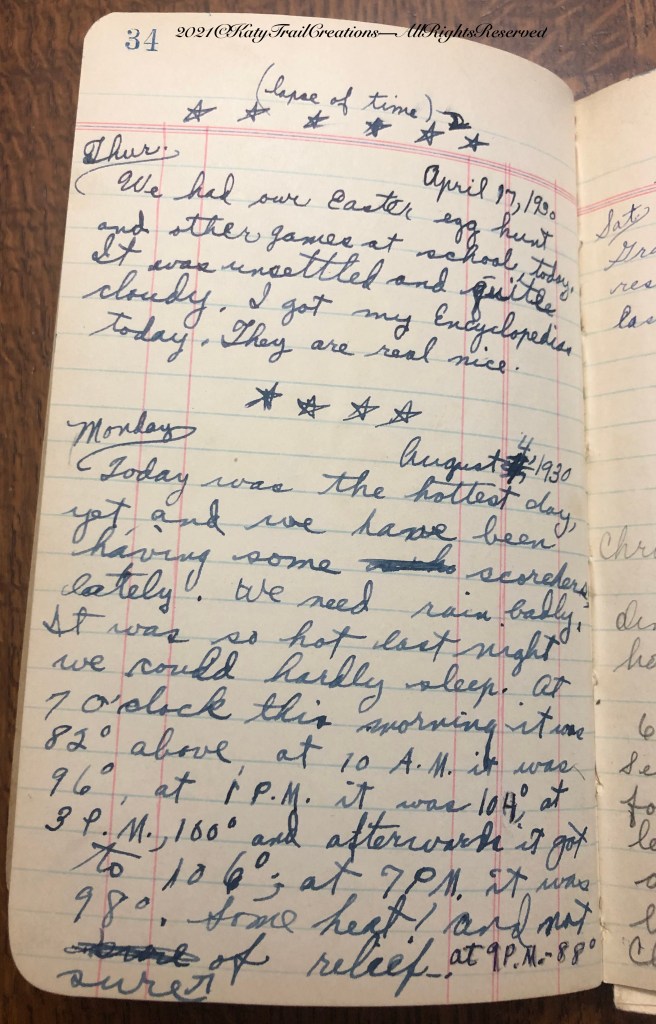 34 2021©KatyTrailCreations—AllRightsReserved
(lapse of time)
Thur.
April 17, 1930
We had our Easter egg hunt
and other games at school, today.
It was unsettled and quitte
cloudy. I got my Encyclopedias
today. They are real nice.
Monday
August 4, 1930
Today was the hottest day,
yet, and we have been
having some scorchers,
lately. We need rain badly.
It was so hot last night
we could hardly sleep. At
7 O'clock this morning it was
82° above, at 10 A.M. it was
96°, at 1 P.M. it was 104°, at
3 P.M., 100° and afterwards it got
to 106°; at 7 P.M. it was
98°. Some heat! and not
of relief. at 9 P.M.-88°
sure
Sat.
Gra
res
las
Chr
6
Se
fo
le